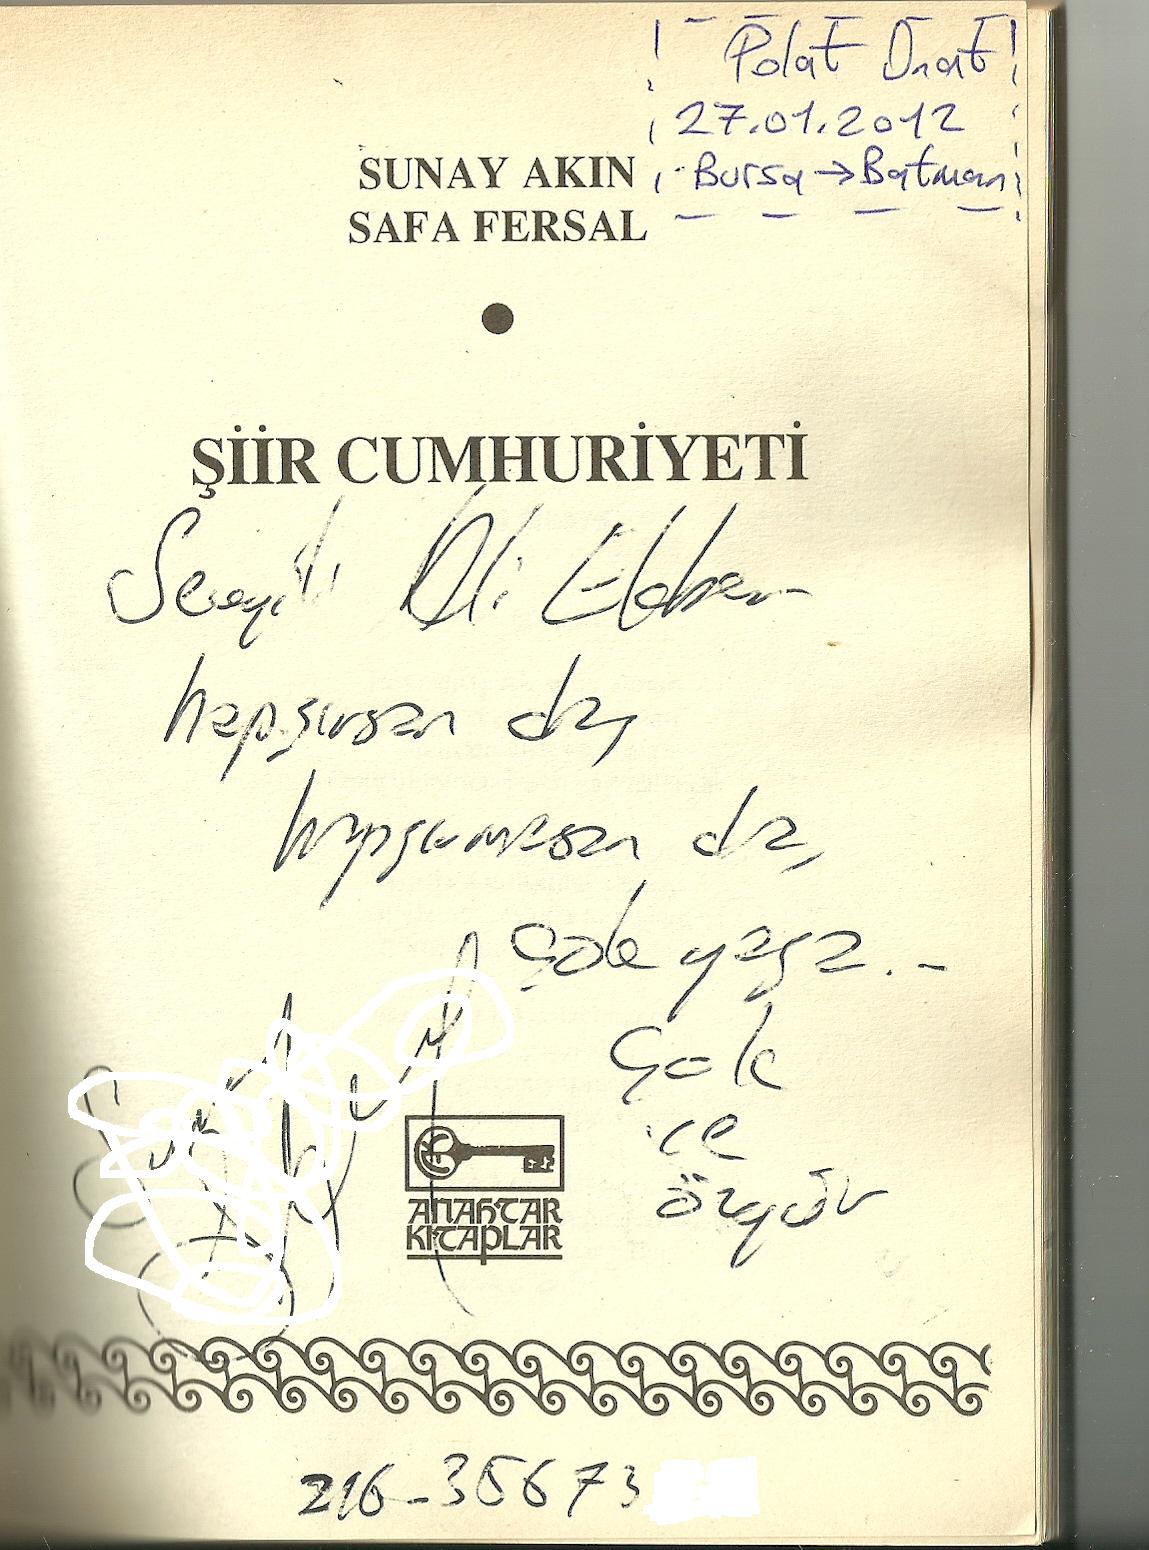 Polat Onat
27.01.2012
Bursa → Batman
SUNAY AKIN
SAFA FERSAL
ŞİİR CUMHURİYETİ
Sevgili Ali Ekber
hapşursan da,
hapşurmasan da,
çok yaşa.-
çok
ve
özgür
ANAHTAR
KİTAPLAR
216-35673